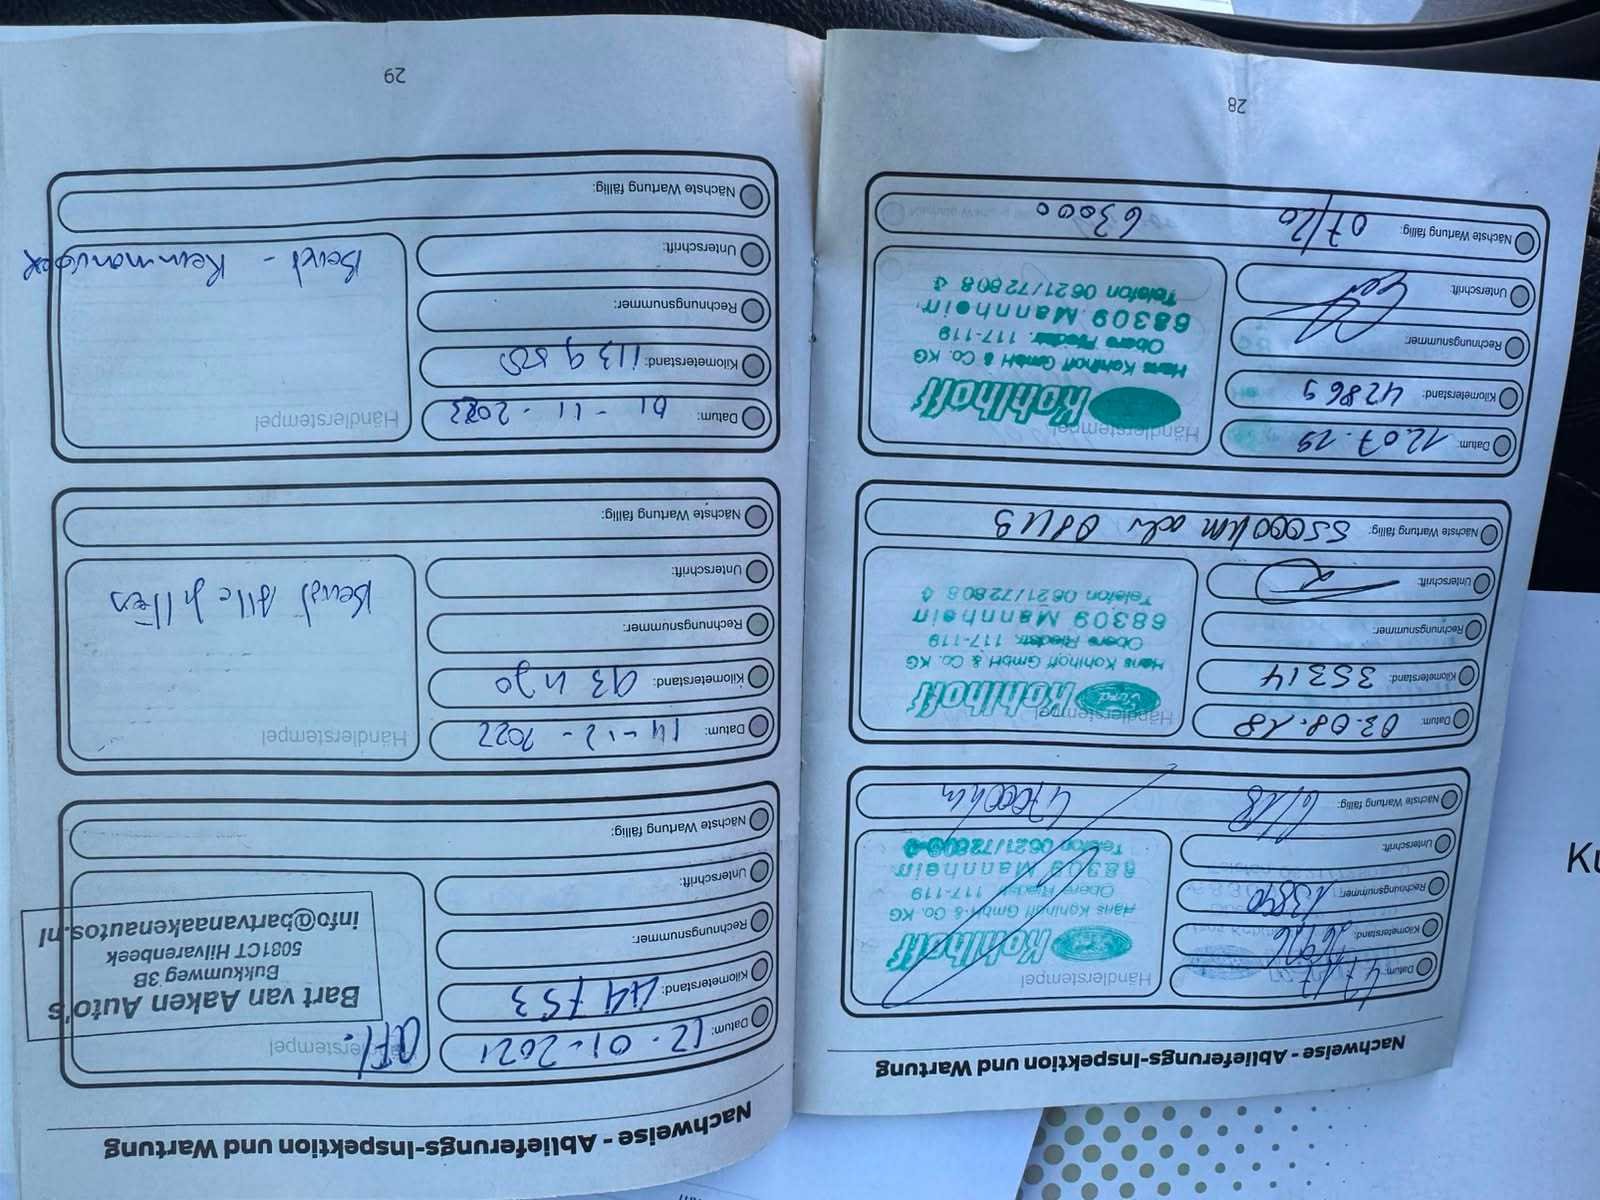 28
Nachweise - Ablieferungs-Inspektion und Wartung
Datum: 4.7.17
Kilometerstand:
Rechnungsnummer:
Unterschrift:
Nächste Wartung fällig: 6/18 47000km
Händlerstempel
Ford Kohlhoff
Hans Kohlhoff GmbH & Co. KG
Obere Riedstr. 117-119
68309 Mannheim
Telefon 0621/72808-0
Datum: 03.08.18
Kilometerstand: 35314
Rechnungsnummer:
Unterschrift:
Nächste Wartung fällig: 55000km oder 08/19
Händlerstempel
Ford Kohlhoff
Hans Kohlhoff GmbH & Co. KG
Obere Riedstr. 117-119
68309 Mannheim
Telefon 0621/72808
Datum: 12.07.19
Kilometerstand: 42869
Rechnungsnummer:
Unterschrift:
Nächste Wartung fällig: 07/20 63000
Händlerstempel
Kohlhoff
Hans Kohlhoff GmbH & Co. KG
Obere Riedstr. 117-119
68309 Mannheim
Telefon 0621/72808
Nachweise - Ablieferungs-Inspektion und Wartung
Datum: 12-01-2021
Kilometerstand: 44753
Rechnungsnummer:
Unterschrift:
Nächste Wartung fällig:
Händlerstempel
Afl.
Bart van Aaken Auto's
Bukkumweg 3B
5081CT Hilvarenbeek
info@bartvanaakenautos.nl
Datum: 14-12-2022
Kilometerstand:
Rechnungsnummer:
Unterschrift:
Nächste Wartung fällig:
Händlerstempel
Beurt Alle filters
Datum: 01-11-2023
Kilometerstand:
Rechnungsnummer:
Unterschrift:
Nächste Wartung fällig:
Händlerstempel
Beurt -
29